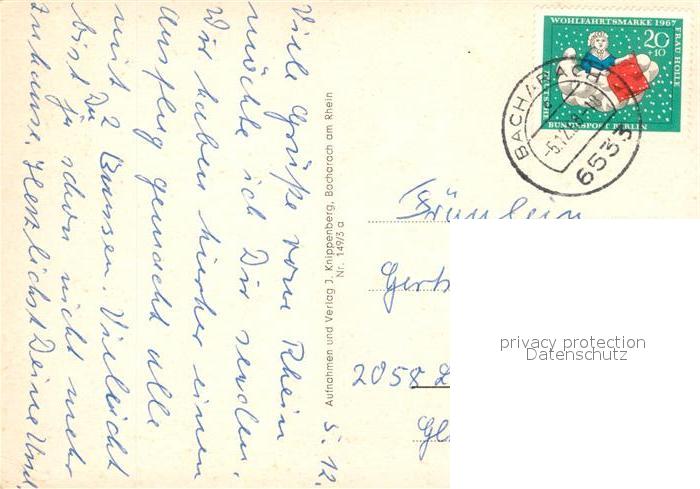 Viele Grüße vom Rhein
möchte ich Dir senden.
Wir haben hierher einen
Ausflug gemacht alle
mit 2 Bussen. Vielleicht
bist Du ja schon nicht mehr
zuhause. Herzlichst Deine
5. 12.
Aufnahmen und Verlag J. Knippenberg, Bacharach am Rhein
Nr. 149/3 a
WOHLFAHRTSMARKE 1967
FRAU HOLLE
20
+10
BUNDESPOST BERLIN
BACHARACH
6533
Fräulein
Gert
2058
privacy protection
Datenschutz